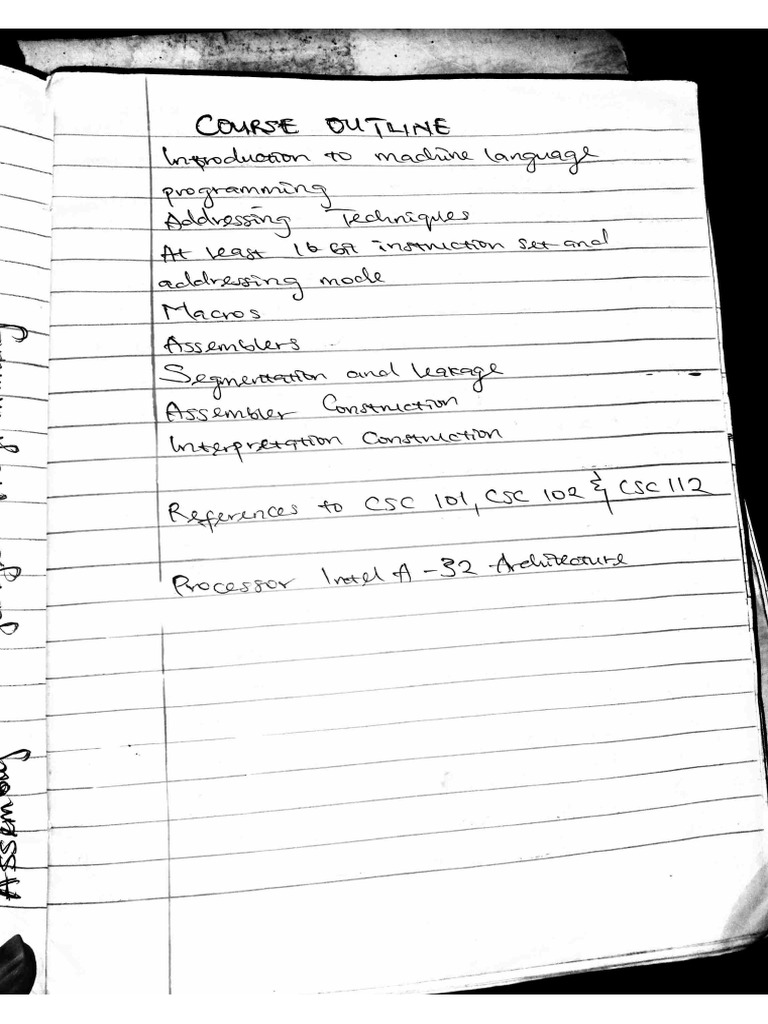 COURSE OUTLINE
Introduction to machine language
programming
Addressing Techniques
At least 16 Bit instruction set and
addressing mode
Macros
Assemblers
Segmentation and leakage
Assembler Construction
Interpretation Construction
References to CSC 101, CSC 102 & CSC 112
Processor Intel A-32 Architecture
Assembly